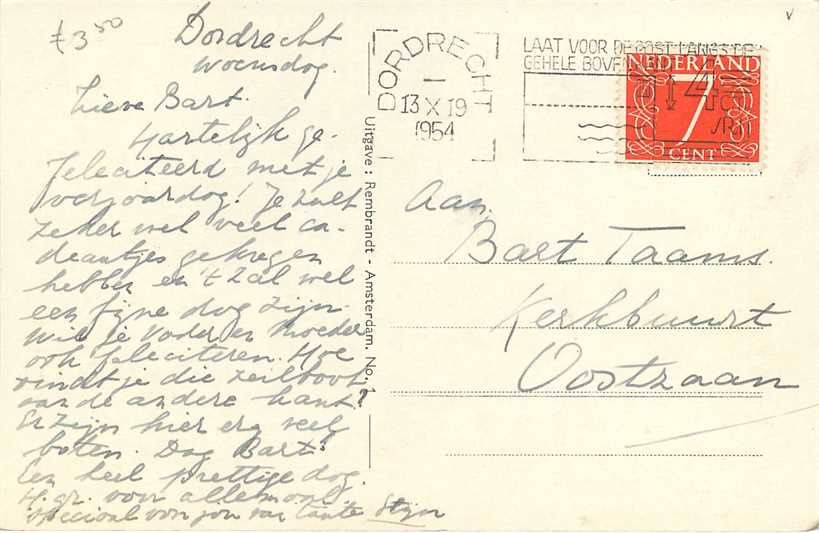 f 3 50
Dordrecht
Woensdag.
Lieve Bart.
Hartelijk ge-
feliciteerd met je
verjaardag! Je zult
zeker wel veel ca-
deautjes gekregen
hebben en 't zal wel
een fijne dag zijn.
Wil je Vader en Moeder
ook feliciteren. Hoe
vindt je die zeilboot
aan de andere kant?
Er zijn hier erg veel
boten. Dag Bart!
Een heel prettige dag.
H. gr. voor allemaal
speciaal voor jou van tante Stijn
Uitgave: Rembrandt - Amsterdam. No. 1
DORDRECHT
13 X 19
1954
LAAT VOOR DE POST LANGS DE
GEHELE BOVEN
NEDERLAND
7
CENT
Aan
Bart Taams.
Kerkbuurt
Oostzaan